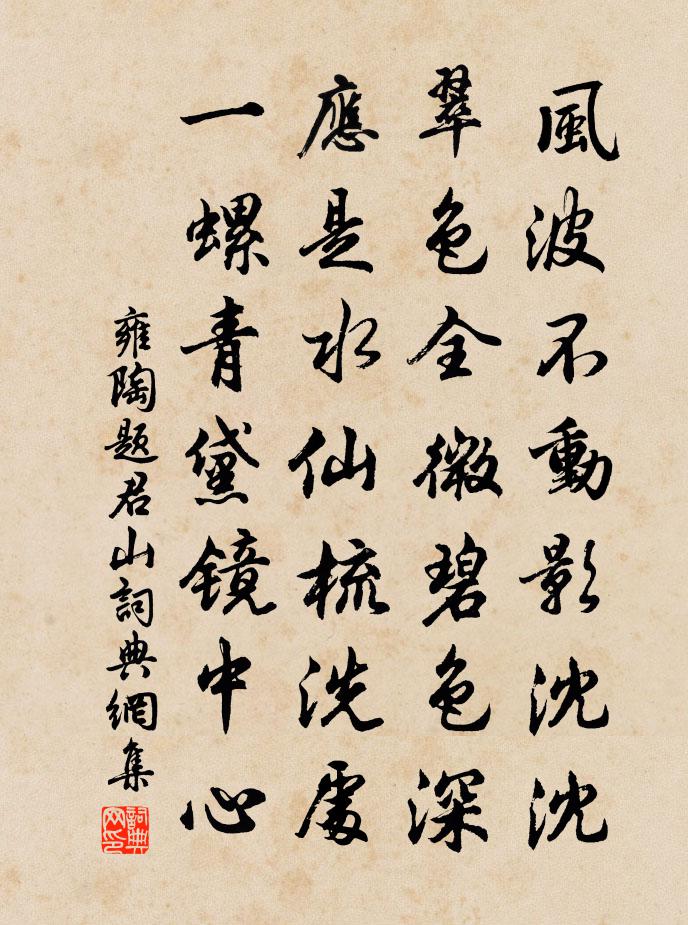 風波不動影沈沈
翠色全微碧色深
應是水仙梳洗處
一螺青黛鏡中心
雍陶題君山詞典網集
詞典网印